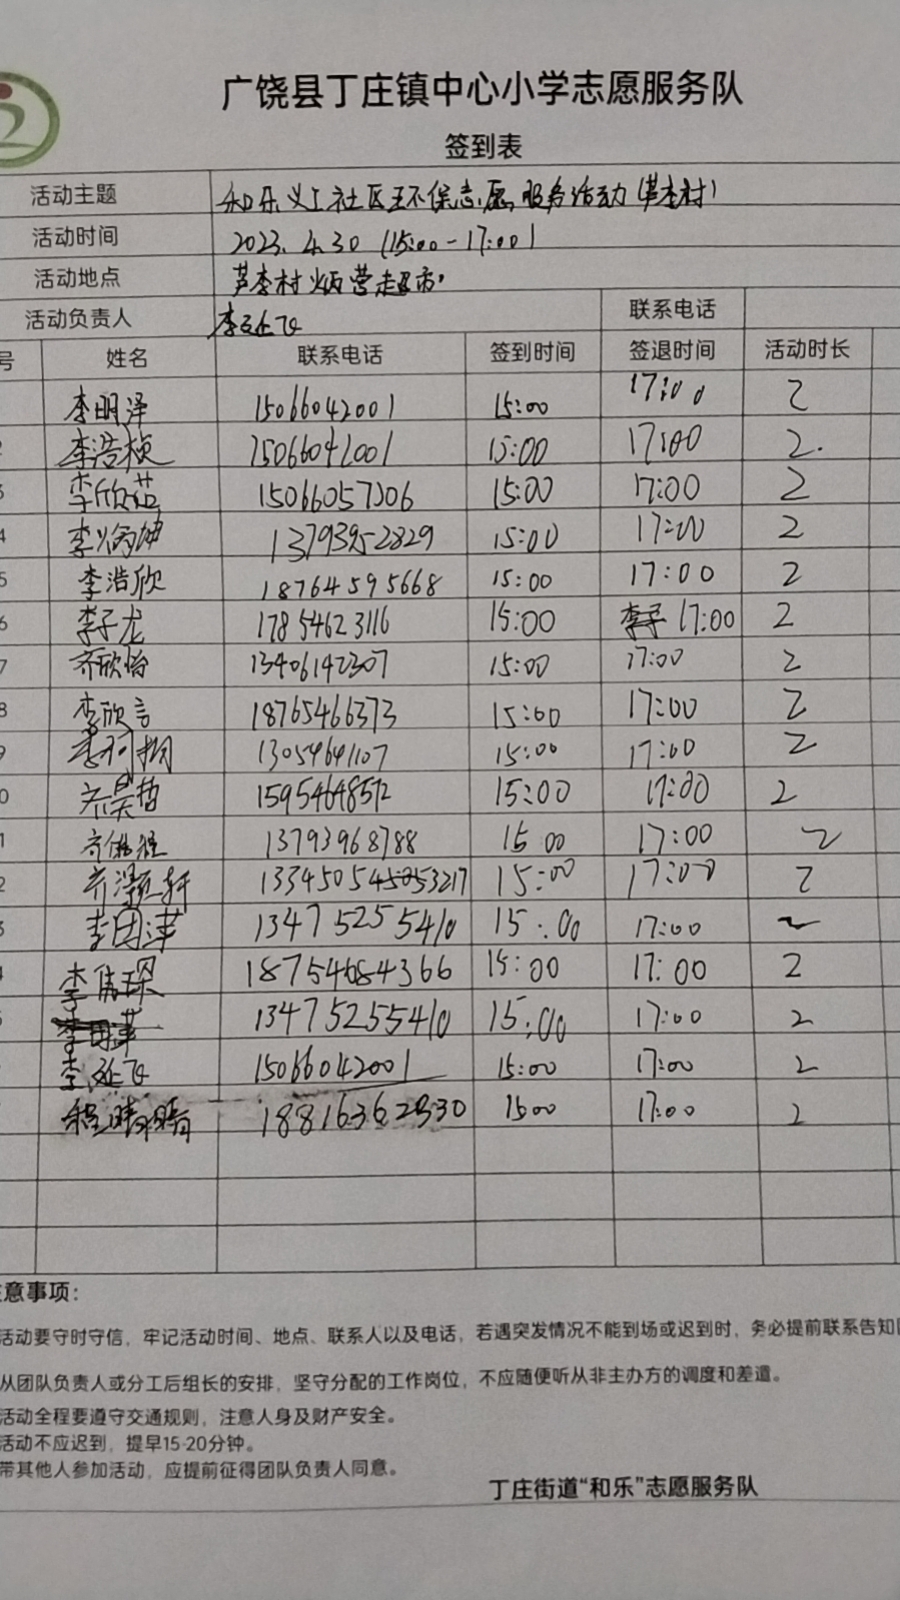 广饶县丁庄镇中心小学志愿服务队
签到表
活动主题 和乐义工社区环保志愿服务活动(芦李村)
活动时间 2023.4.30 (15:00-17:00)
活动地点 芦李村炳营超市
活动负责人 李延飞 联系电话
号 姓名 联系电话 签到时间 签退时间 活动时长
李明泽 15066042001 15:00 17:00 2
2 李浩桢 15066042001 15:00 17:00 2.
3 李欣茹 15066057306 15:00 17:00 2
4 李炳坤 13793952829 15:00 17:00 2
5 李浩欣 18764595668 15:00 17:00 2
6 李子龙 17854623116 15:00 李子 17:00 2
7 齐欣怡 13406142307 15:00 17:00 2
8 李欣言 18765466373 15:00 17:00 2
9 李珂桐 13054641107 15:00 17:00 2
0 齐昊哲 15954648572 15:00 17:00 2
1 齐 13793968788 15 00 17:00 2
2 齐 轩 15:00 17:00 2
3 李国泽 13475255410 15:00 17:00 2
4 李伟琛 18754684366 15:00 17:00 2
5 13475255410 15:00 17:00 2
李延飞 15066042001 15:00 17:00 2
程晴晴 15:00 17:00 2
注意事项：
活动要守时守信，牢记活动时间、地点、联系人以及电话，若遇突发情况不能到场或迟到时，务必提前联系告知
从团队负责人或分工后组长的安排，坚守分配的工作岗位，不应随便听从非主办方的调度和差遣。
活动全程要遵守交通规则，注意人身及财产安全。
活动不应迟到，提早15-20分钟。
带其他人参加活动，应提前征得团队负责人同意。
丁庄街道“和乐”志愿服务队